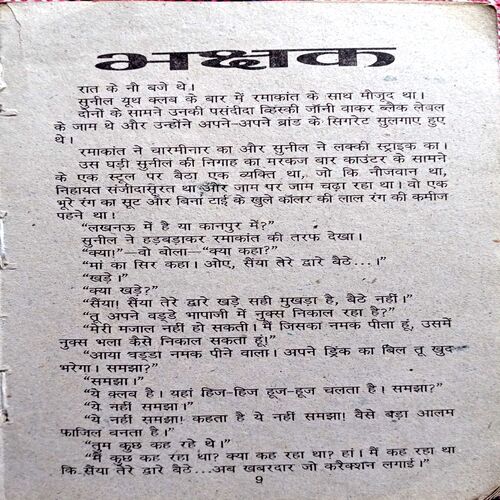 भक्षक
रात के नौ बजे थे।
सुनील यूथ क्लब के बार में रमाकांत के साथ मौजूद था।
दोनों के सामने उनकी पसंदीदा व्हिस्की जॉनी वाकर ब्लैक लेबल
के जाम थे और उन्होंने अपने-अपने ब्रांड के सिगरेट सुलगाए हुए
थे।
रमाकांत ने चारमीनार का और सुनील ने लक्की स्ट्राइक का।
उस घड़ी सुनील की निगाह का मरकज बार काउंटर के सामने
के एक स्टूल पर बैठा एक व्यक्ति था, जो कि नौजवान था,
निहायत संजीदासूरत था और जाम पर जाम चढ़ा रहा था। वो एक
भूरे रंग का सूट और बिना टाई के खुले कॉलर की लाल रंग की कमीज
पहने था।
“लखनऊ में है या कानपुर में?”
सुनील ने हड़बड़ाकर रमाकांत की तरफ देखा।
“क्या!”—वो बोला—“क्या कहा?”
“मां का सिर कहा। ओए, सैंया तेरे द्वारे बैठे...।”
“खड़े।”
“क्या खड़े?”
“सैंया! सैंया तेरे द्वारे खड़े सही मुखड़ा है, बैठे नहीं।”
“तू अपने वड्डे भापाजी में नुक्स निकाल रहा है?”
“मेरी मजाल नहीं हो सकती। मैं जिसका नमक पीता हूं, उसमें
नुक्स भला कैसे निकाल सकता हूं!”
“आया वड्डा नमक पीने वाला। अपने ड्रिंक का बिल तू खुद
भरेगा। समझा?”
“समझा।”
“ये क्लब है। यहां हिज-हिज हूज-हूज चलता है। समझा?”
“ये नहीं समझा।”
“ये नहीं समझा! कहता है ये नहीं समझा! वैसे बड़ा आलम
फाजिल बनता है।”
“तुम कुछ कह रहे थे।”
“मैं कुछ कह रहा था? क्या कह रहा था? हां। मैं कह रहा था
कि सैंया तेरे द्वारे बैठे...अब खबरदार जो करैक्शन लगाई।”
9